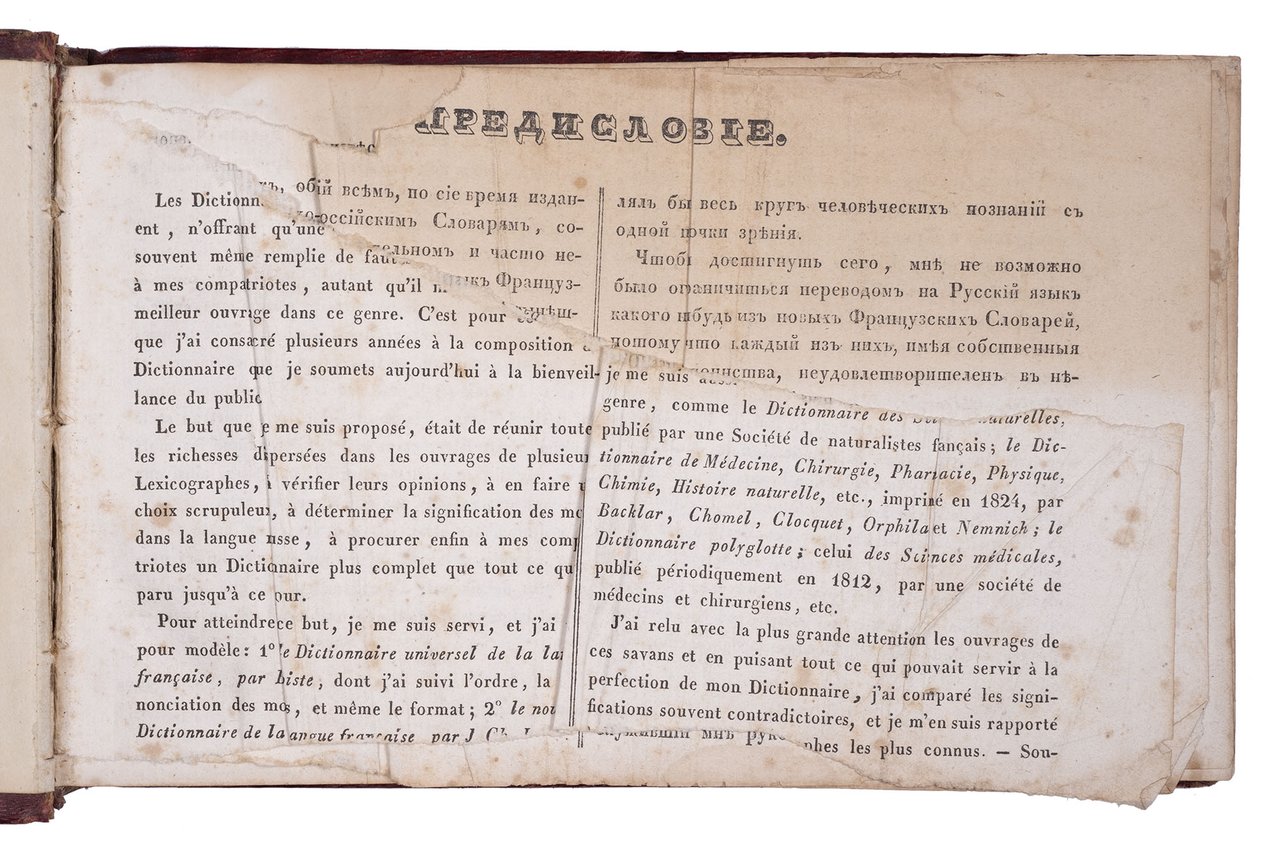 ПРЕДИСЛОВІЕ.
Les Dictionn
обій всѣмъ, по сіе время издан-
ent, n'offrant qu'une
оссійскимъ Словарямъ, со-
souvent même remplie de faut
тельномъ и часто не-
à mes compatriotes, autant qu'il
Француз-
meilleur ouvrage dans ce genre. C'est pour
que j'ai consacré plusieurs années à la composition
Dictionnaire que je soumets aujourd'hui à la bienveil-
lance du public
Le but que je me suis proposé, était de réunir toute
les richesses dispersées dans les ouvrages de plusieu
Lexicographes, à vérifier leurs opinions, à en faire
choix scrupuleux, à déterminer la signification des mo
dans la langue russe, à procurer enfin à mes comp
triotes un Dictionnaire plus complet que tout ce qu
paru jusqu'à ce jour.
Pour atteindre ce but, je me suis servi, et j'ai
pour modèle: 1° le Dictionnaire universel de la la
française, par Boiste, dont j'ai suivi l'ordre, la
nonciation des mots, et même le format; 2° le nou
Dictionnaire de la langue française par J
лялъ бы весь кругъ человѣческихъ познаній съ
одной точки зрѣнія.
Чтобъ достигнуть сего, мнѣ не возможно
было ограничиться переводомъ на Русскій языкъ
какого нибудь изъ новыхъ Французскихъ Словарей,
потому что каждый изъ нихъ, имѣя собственныя
неудовлетворителенъ въ нѣ-
je me suis
genre, comme le Dictionnaire des naturelles,
publié par une Société de naturalistes fançais; le Dic-
tionnaire de Médecine, Chirurgie, Pharmacie, Physique,
Chimie, Histoire naturelle, etc., imprimé en 1824, par
Backlar, Chomel, Clocquet, Orphila et Nemnich; le
Dictionnaire polyglotte; celui des Sciences médicales,
publié périodiquement en 1812, par une société de
médecins et chirurgiens, etc.
J'ai relu avec la plus grande attention les ouvrages de
ces savans et en puisant tout ce qui pouvait servir à la
perfection de mon Dictionnaire, j'ai comparé les signi-
fications souvent contradictoires, et je m'en suis rapporté
phes les plus connus. — Sou-